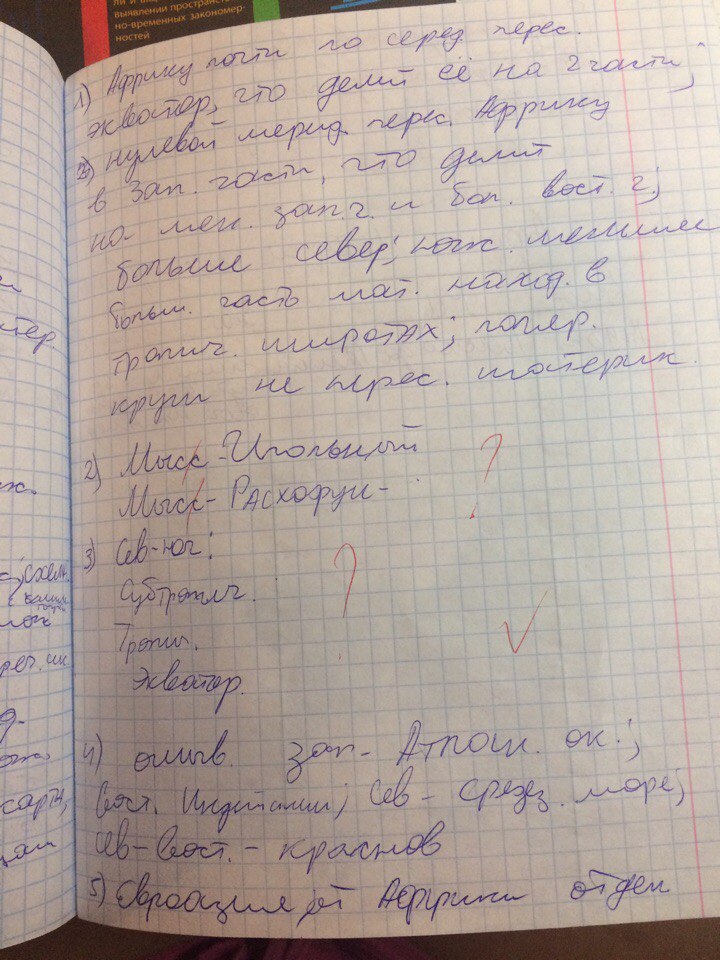 ли и вы
выявлении пространст
но-временных закономер-
ностей
1) Африку почти по серед. перес.
экватор, что делит её на 2 части;
нулевой мерид. перес. Африку
в Зап. части, что делит
на мен. зап. ч. и бол. вост. ч.;
больше север; южн. меньше
больш. часть мат. наход. в
тропич. широтах; поляр.
круги не перес. материк.
2) Мыск - Игольный
Мыск - Расхафун -
?
3) Сев-юг:
Субтропич.
?
Тропич.
Экватор.
4) омыв. зап - Атлан. ок.;
Вост. Индийский; Сев - средез. море;
Сев-Вост. - красное
5) Евразия от Африки отдел
тер.
схем.
сарты,